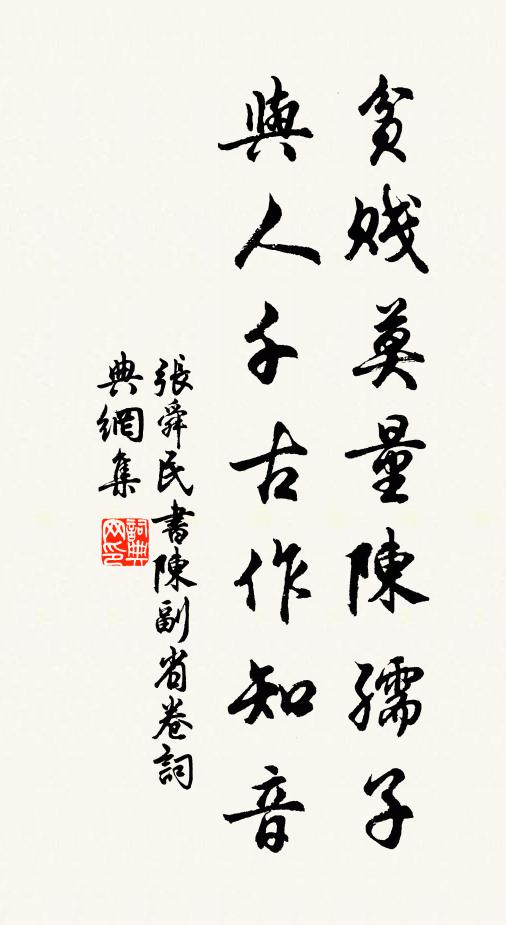 貧賤莫量陳孺子
與人千古作知音
張舜民書陳副省卷詞
典網集
詞典
网印